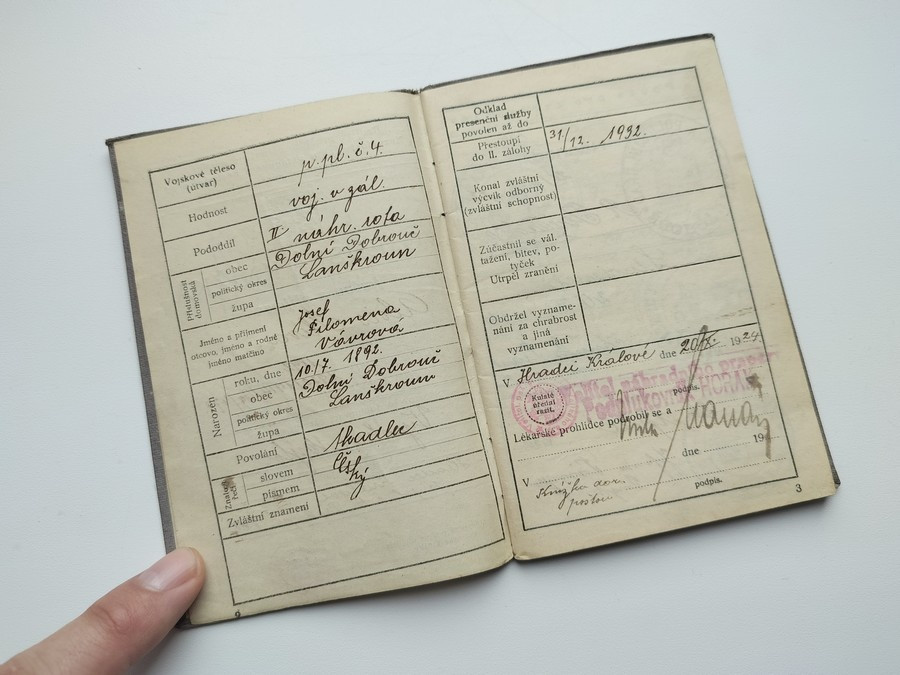 Vojskové těleso
(útvar)
p. pl. č. 4.
Hodnost
voj. v zál.
Pododdíl
II náhr. rota
Příslušnost
domovská
obec
Dolní Dobrouč
politický okres
Lanškroun
župa
Jméno a příjmení
otcovo, jméno a rodné
jméno matčino
Josef
Filomena
Vávrová
Narozen
roku, dne
10./7. 1892.
obec
Dolní Dobrouč
politický okres
Lanškroun
župa
Povolání
tkadlec
Znalost
řečí
slovem
písmem
Český
Zvláštní znamení
Odklad
presenční služby
povolen až do
Přestoupí
do II. zálohy
31/12. 1932.
Konal zvláštní
výcvik odborný
(zvláštní schopnost)
Zúčastnil se vál.
tažení, bitev, po-
tyček
Utrpěl zranění
Obdržel vyzname-
nání za chrabrost
a jiná
vyznamenání
V Hradci Králové dne 1924
podpis.
Kulaté
úřední
raz.
Lékařské prohlídce podrobil se a
dne 19
V
Knížka dor.
poštou
podpis.
3